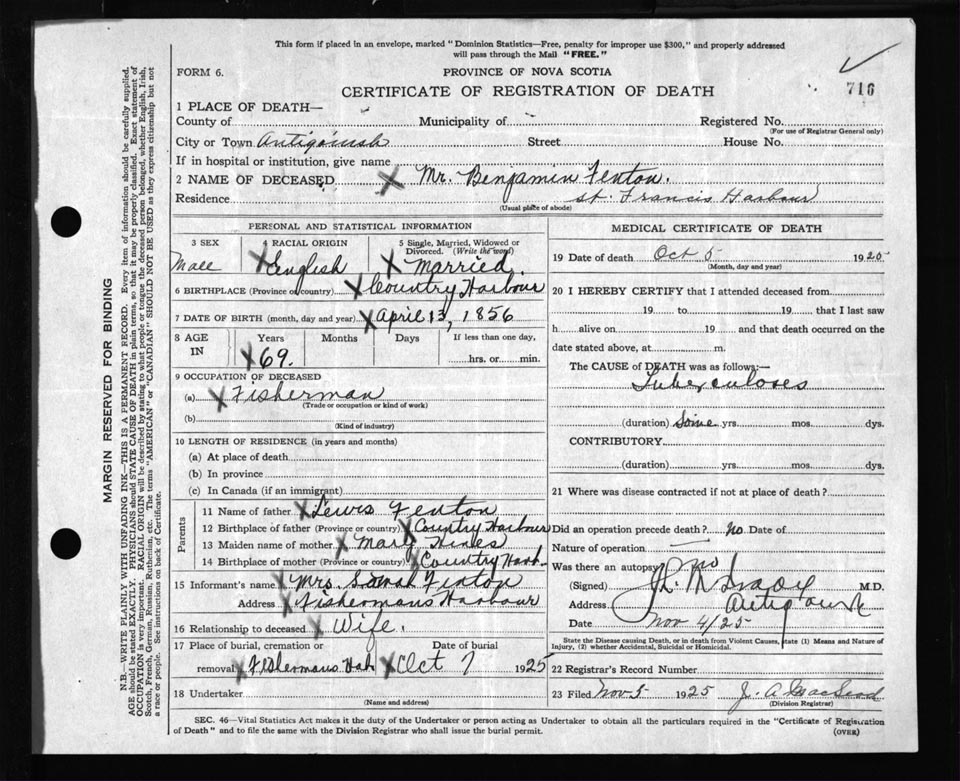 This form if placed in an envelope, marked "Dominion Statistics—Free, penalty for improper use $300," and properly addressed
will pass through the Mail "FREE."
FORM 6.
PROVINCE OF NOVA SCOTIA
716
CERTIFICATE OF REGISTRATION OF DEATH
1 PLACE OF DEATH—
County of Municipality of Registered No.
(For use of Registrar General only)
City or Town Antigoinsh Street House No.
If in hospital or institution, give name
2 NAME OF DECEASED Mr. Benjamin Fenton.
Residence St. Francis Harbour
(Usual place of abode)
PERSONAL AND STATISTICAL INFORMATION
3 SEX 4 RACIAL ORIGIN 5 Single, Married, Widowed or
Divorced. (Write the word)
Male English Married.
6 BIRTHPLACE (Province or country) Country Harbour
7 DATE OF BIRTH (month, day and year) April 13, 1856
8 AGE Years Months Days If less than one day,
IN 69. hrs. or min.
9 OCCUPATION OF DECEASED
(a) Fisherman
(Trade or occupation or kind of work)
(b)
(Kind of industry)
10 LENGTH OF RESIDENCE (in years and months)
(a) At place of death
(b) In province
(c) In Canada (if an immigrant)
Parents
11 Name of father Lewis Fenton
12 Birthplace of father (Province or country) Country Harbour
13 Maiden name of mother Mary Hines
14 Birthplace of mother (Province or country) Country Harb.
15 Informant's name Mrs. Sarah Fenton
Address Fishermans Harbour
16 Relationship to deceased Wife.
17 Place of burial, cremation or Date of burial
removal Fishermans Hab Oct 7 1925
18 Undertaker
(Name and address)
MEDICAL CERTIFICATE OF DEATH
19 Date of death Oct 5 1925
(Month, day and year)
20 I HEREBY CERTIFY that I attended deceased from
19 to 19 that I last saw
h alive on 19 and that death occurred on the
date stated above, at m.
The CAUSE of DEATH was as follows:—
Tuberculoses
(duration) Some yrs. mos. dys.
CONTRIBUTORY
(duration) yrs. mos. dys.
21 Where was disease contracted if not at place of death?
Did an operation precede death? no Date of
Nature of operation
Was there an autopsy no
(Signed) M.D.
Address Antigonish
Date Nov 4/25
State the Disease causing Death, or in death from Violent Causes, state (1) Means and Nature of
Injury, (2) whether Accidental, Suicidal or Homicidal.
22 Registrar's Record Number
23 Filed Nov 5 1925 J. A. MacLeod
(Division Registrar)
SEC. 46—Vital Statistics Act makes it the duty of the Undertaker or person acting as Undertaker to obtain all the particulars required in the "Certificate of Registration
of Death" and to file the same with the Division Registrar who shall issue the burial permit.
(OVER)
MARGIN RESERVED FOR BINDING
N.B.—WRITE PLAINLY WITH UNFADING INK—THIS IS A PERMANENT RECORD. Every item of information should be carefully supplied.
AGE should be stated EXACTLY. PHYSICIANS should STATE CAUSE OF DEATH in plain terms, so that it may be properly classified. Exact statement of
OCCUPATION is very important. RACIAL ORIGIN will be described by stating to what people or tongue the deceased person belonged, whether English, Irish,
Scotch, French, German, Russian, Ruthenian, etc. The terms "AMERICAN" or "CANADIAN" SHOULD NOT BE USED as they express citizenship but not
a race or people. See instructions on back of Certificate.